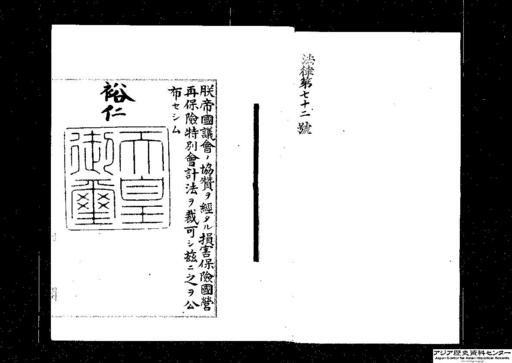 法律第七十二號
朕帝國議會ノ協贊ヲ經タル損害保險國營
再保險特別會計法ヲ裁可シ茲ニ之ヲ公
布セシム
裕仁
天皇
御璽
アジア歴史資料センター
Japan Center for Asian Historical Records